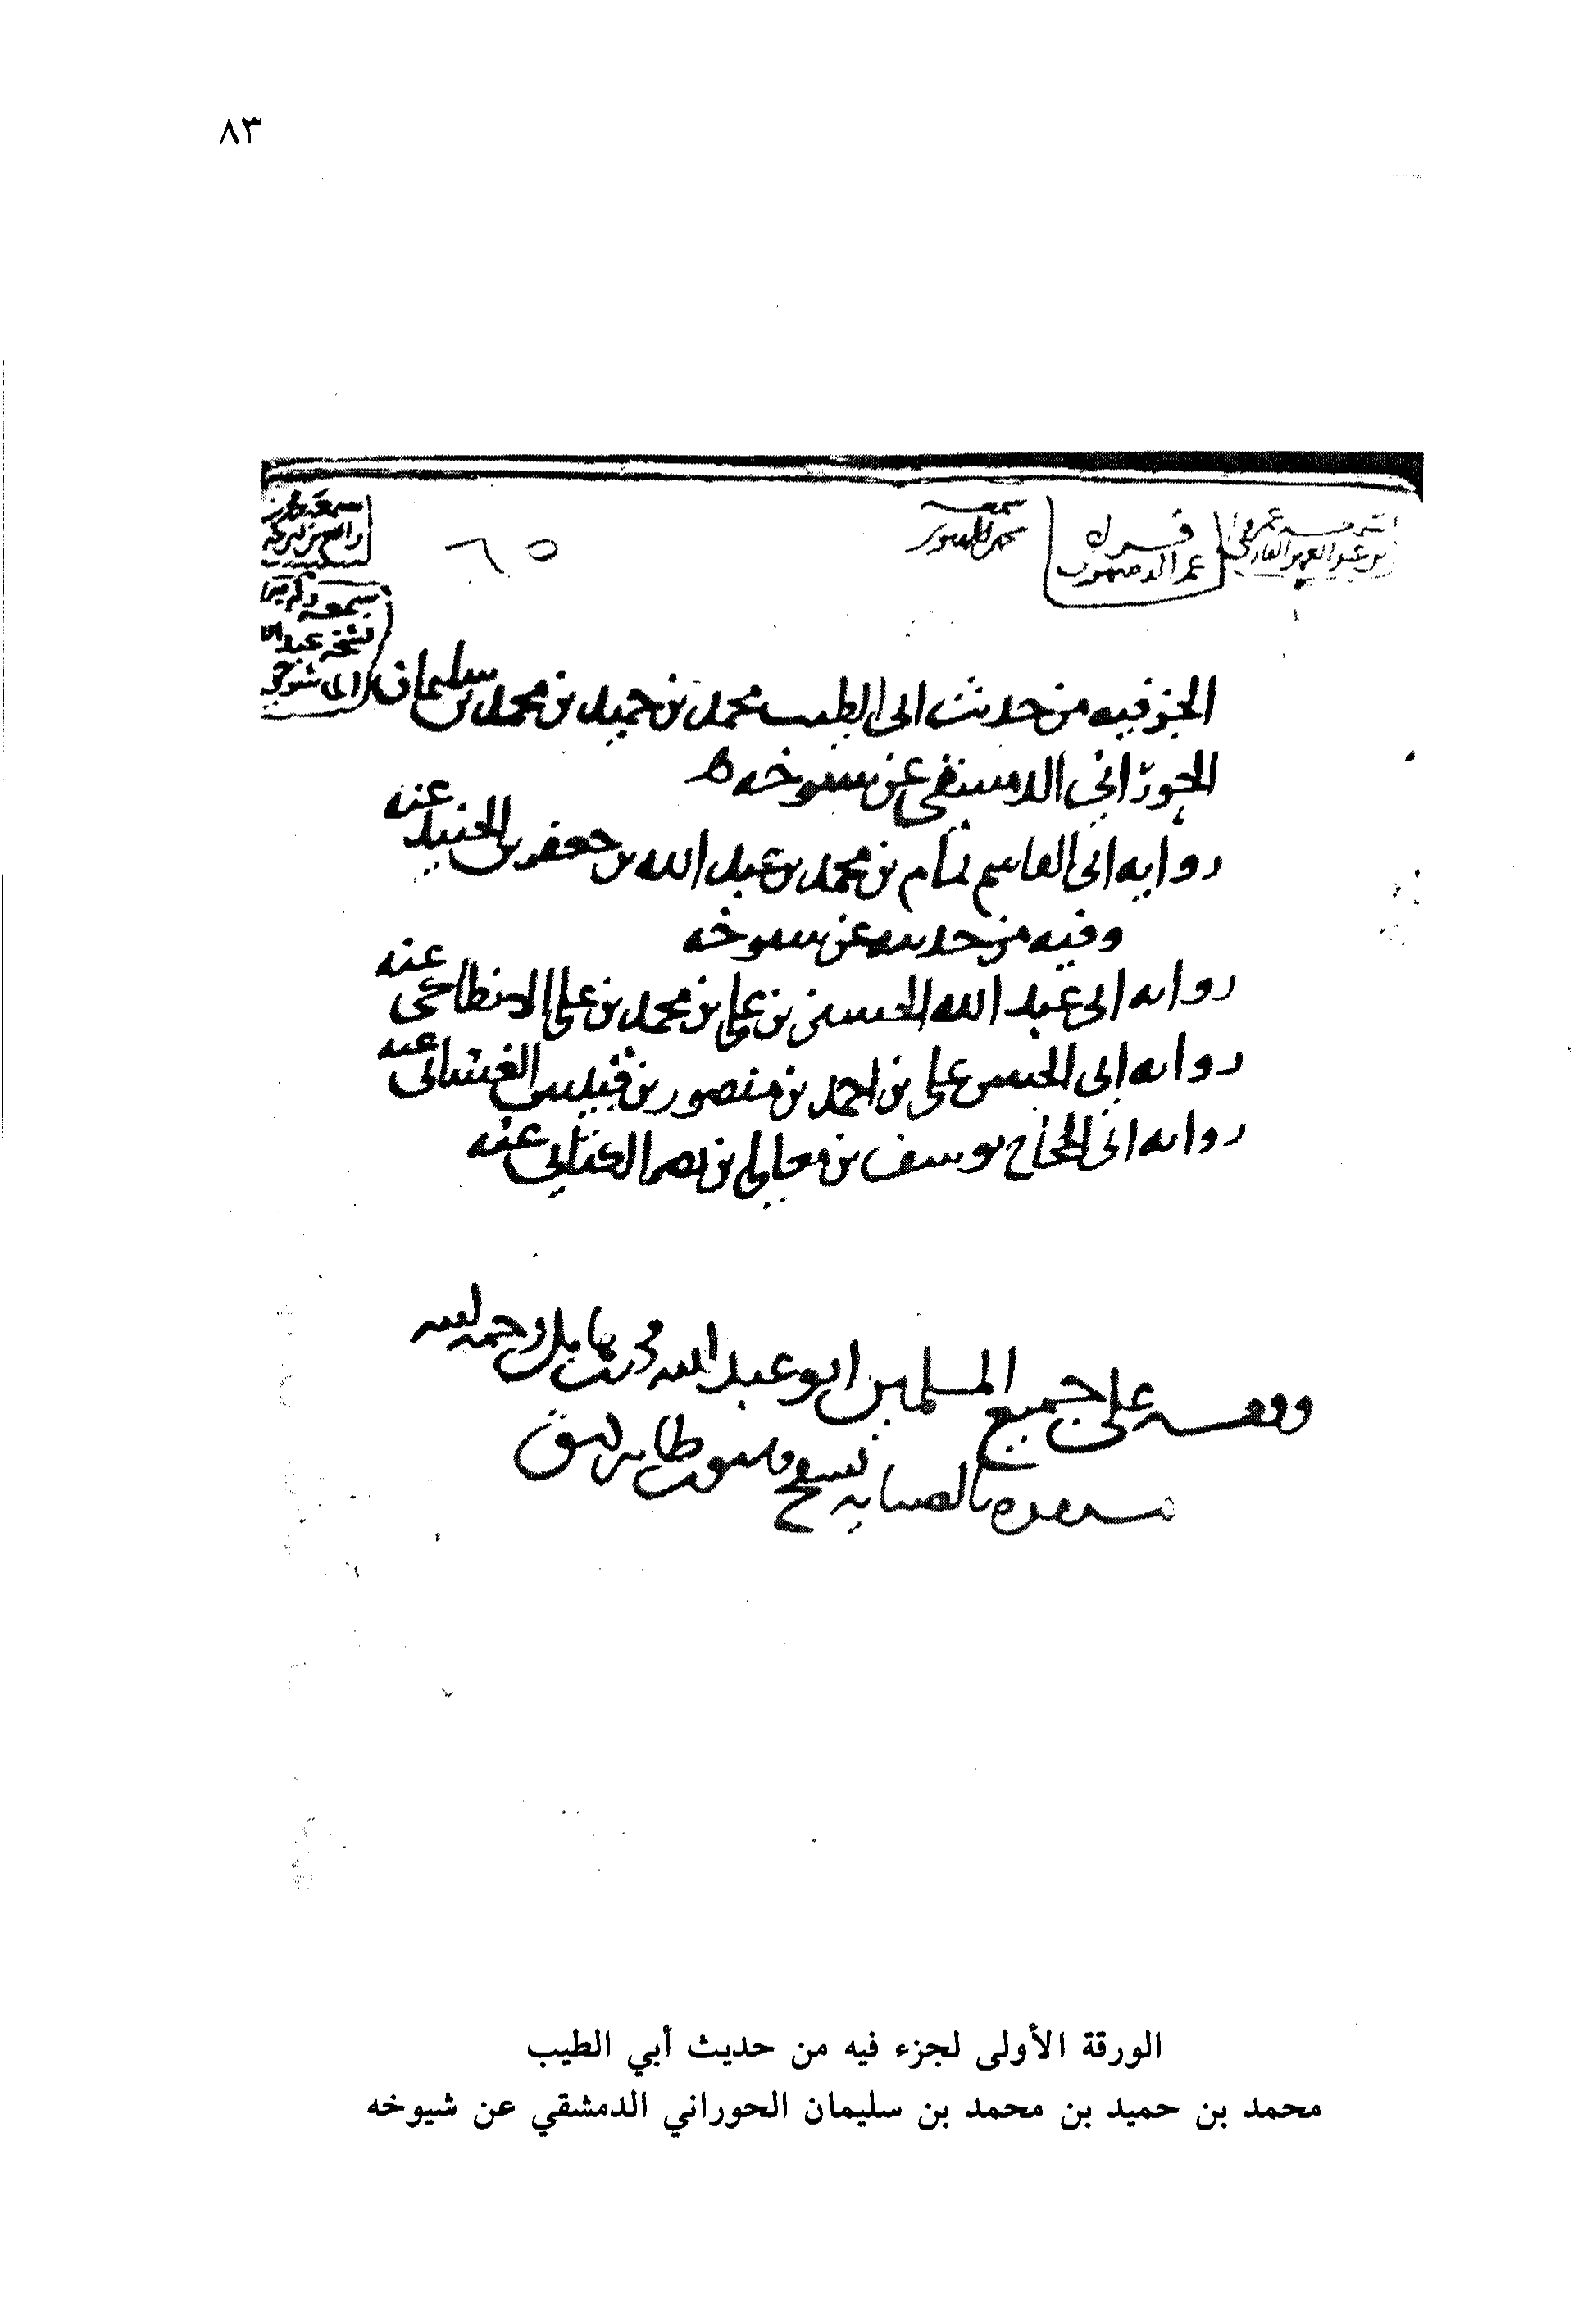 ٨٣
قرأه
عمر الدمنهوري
سمعه
٦٥
سمعه
سمعه
نسخه عبد الله
الجز فيه من حديث ابى الطيب محمد بن حميد بن محمد بن سليمان
الحورَاني الدمشقى عن شيوخه
روايه ابى القاسم تمام بن محمد بن عبد الله بن جعفر بن الجنيد عنه
وفيه من حديثه عن شيوخه
روايه ابى عبد الله الحسين بن على بن محمد بن على الانطاكى عنه
روايه ابى الحسن على بن احمد بن منصور بن قبيس الغسانى عنه
روايه ابى الحجاج يوسف بن معالى بن نصر الكنانى عنه
وقفه على جميع المسلمين ابو عبد الله محمد بن رحمه الله
بالضيائيه بسفح قاسيون ظاهر دمشق
الورقة الأولى لجزء فيه من حديث أبي الطيب
محمد بن حميد بن محمد بن سليمان الحوراني الدمشقي عن شيوخه